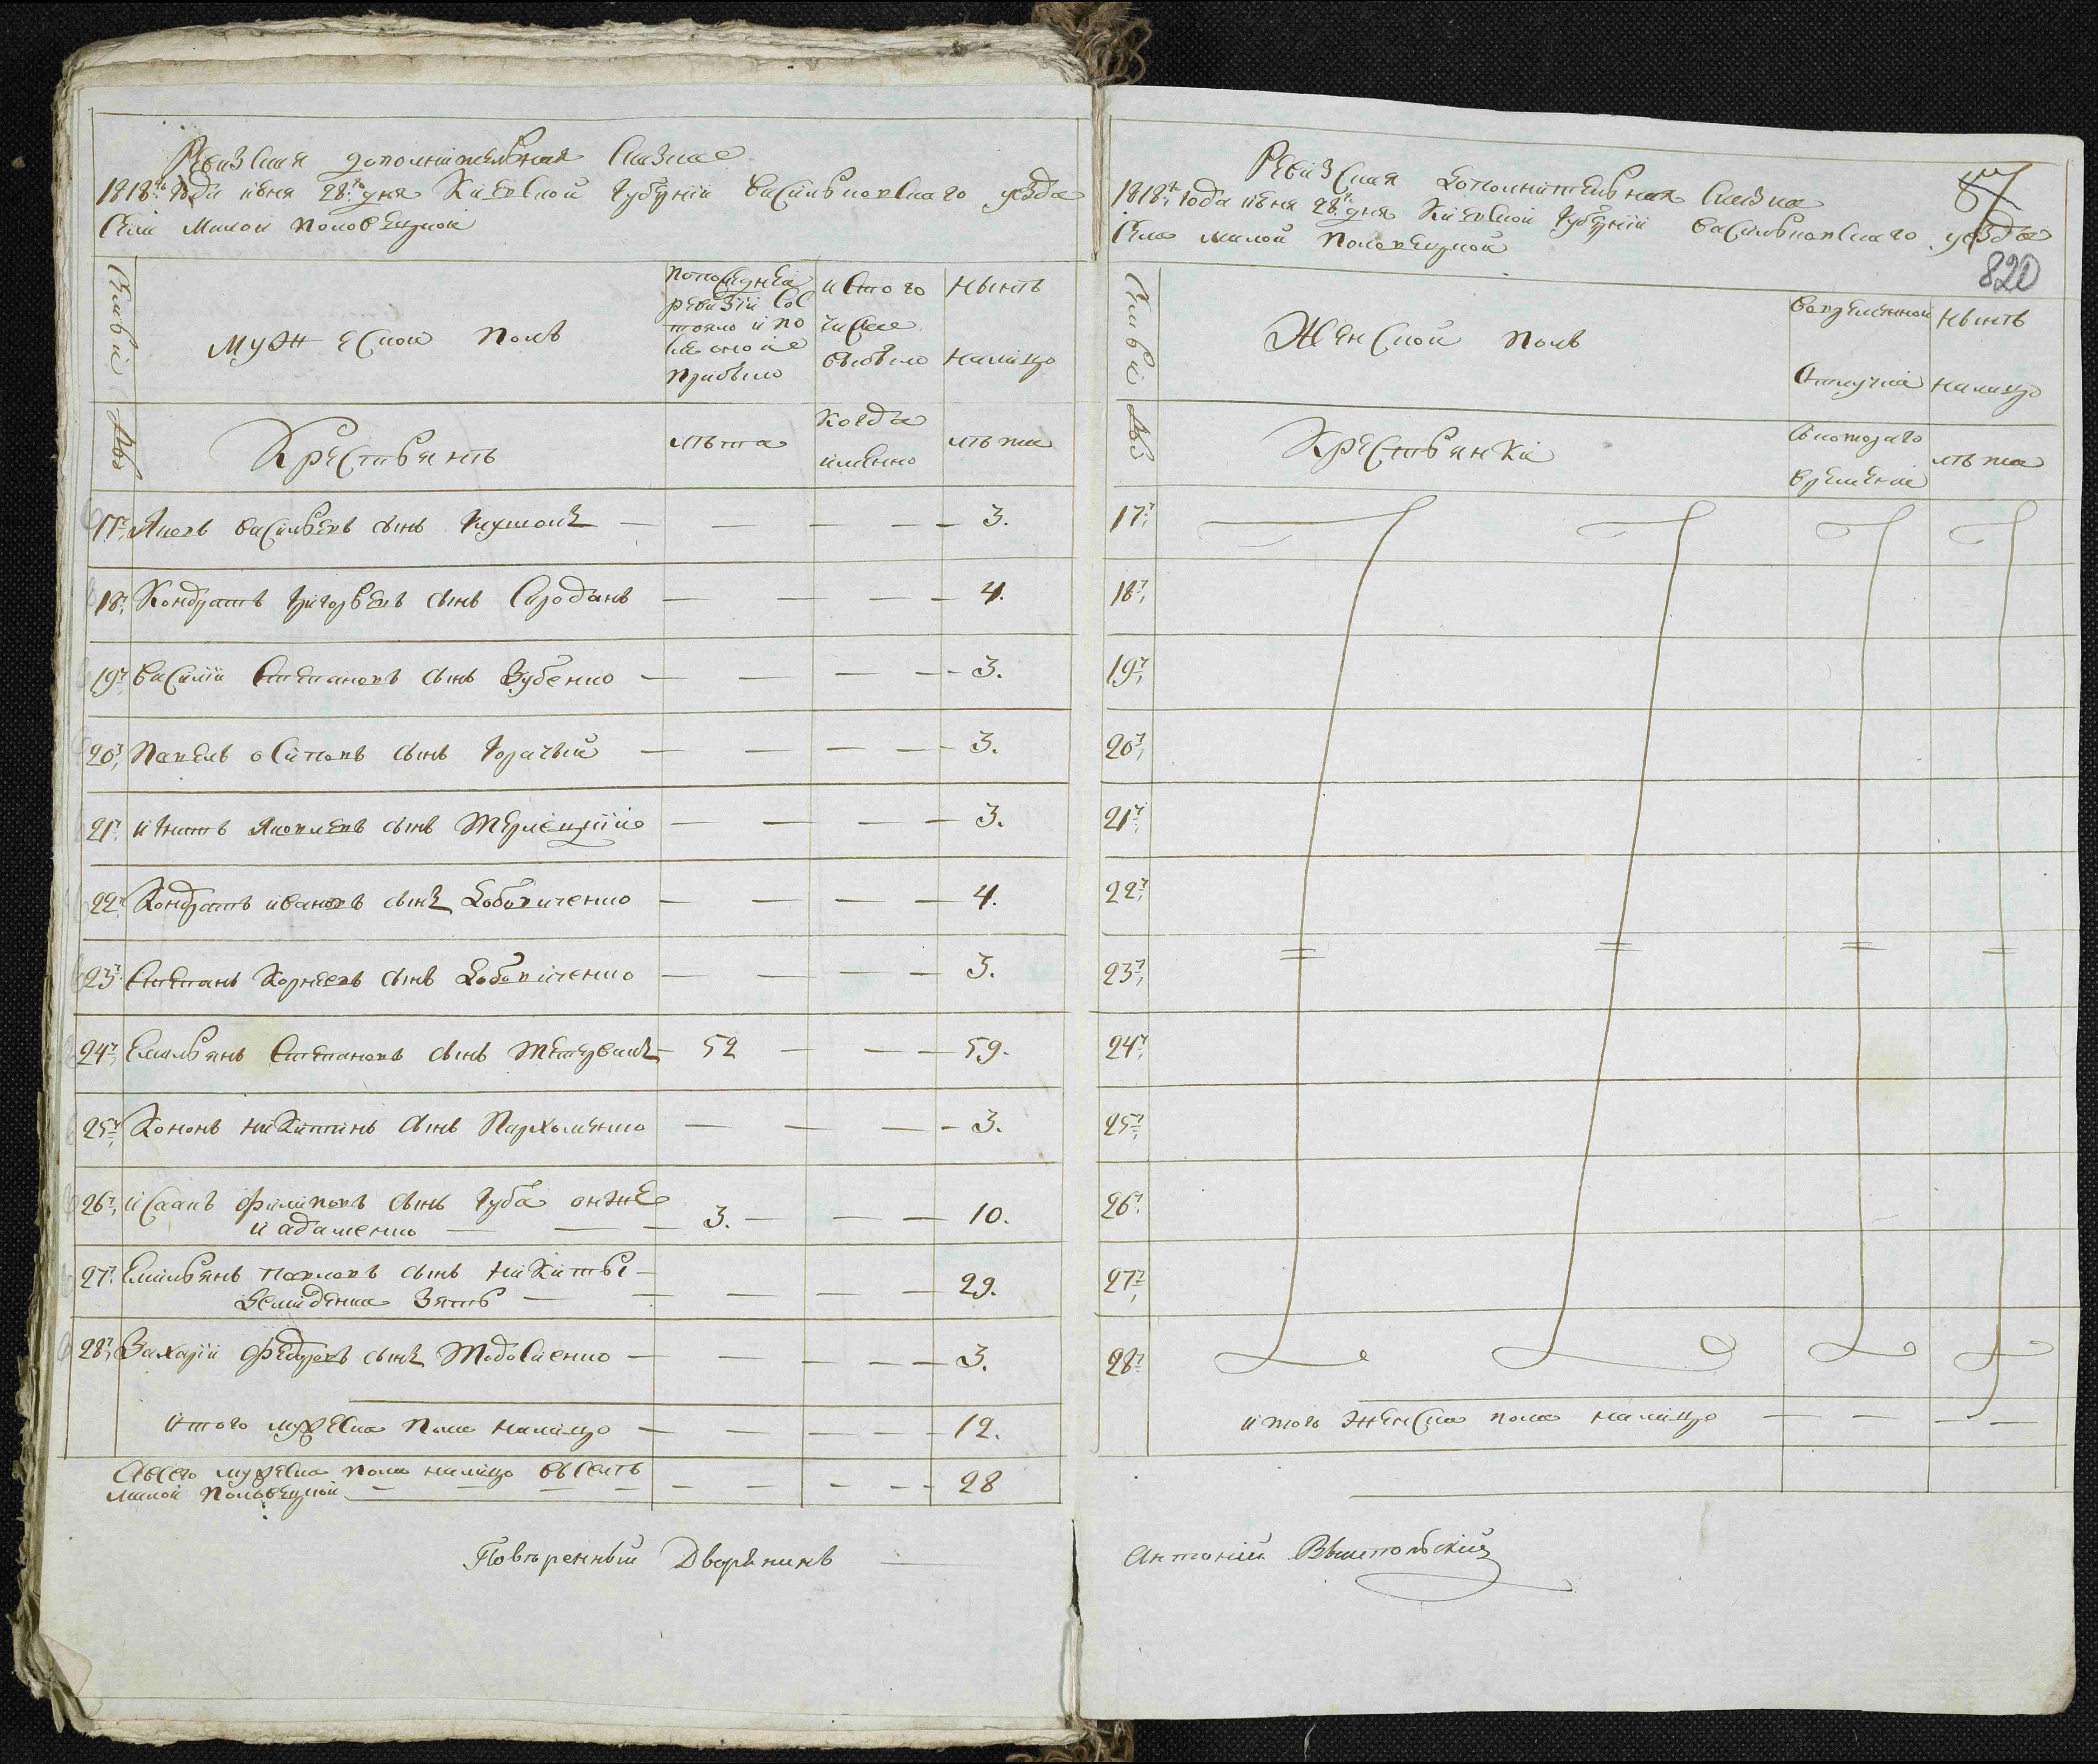 Ревизская дополнительная сказка
1818го года июня 28го дня Киевской губернии васильковскаго уезда
села малой половецкой
семьи
мужескои полъ
по последней
ревизии сос
тояло и по
сле оной
прибыло
из того
числа
выбыло
нынѣ
налицо
№
Крестьянѣ
лѣта
когда
именно
лѣта
17. Яковъ васильевъ сынъ — — — 3.
18. Кондратъ григорьевъ сынъ — — — 4.
19. василій степановъ сынъ Зубенко — — — 3.
20. Павелъ осиповъ сынъ горачый — — — 3.
21. игнатъ яковлевъ сынъ терлецкій — — — 3.
22. Кондратъ ивановъ сынъ — — — 4.
23. степанъ Корнеевъ сынъ — — — 3.
24. Емельянъ степановъ сынъ — 52 — — 59.
25. Кононъ никитинъ сынъ Пархоменко — — — 3.
26. исаакъ филиповъ сынъ губа онже
и адаменко — 3. — — 10.
27. Емельянъ павловъ сынъ никиты
зять — — — 29.
28. Захарій федоровъ сынъ тодосиенко — — — 3.
итого мужеска пола налицо — — — 12.
а всего мужеска пола налицо въ селѣ
малой половецкой — — — 28
Повѣренный Дворянинъ
Ревизская дополнительная сказка
1818го года июня 28го дня Киевской губерніи васильковскаго уезда
села малой половецкой
820
семьи
Женской полъ
во временной
отлучке
нынѣ
налицо
№
Крестьянки
съ котораго
времени
лѣта
17.
18.
19.
20.
21.
22.
23.
24.
25.
26.
27.
28.
итого женска пола налицо — — — —
Антоній